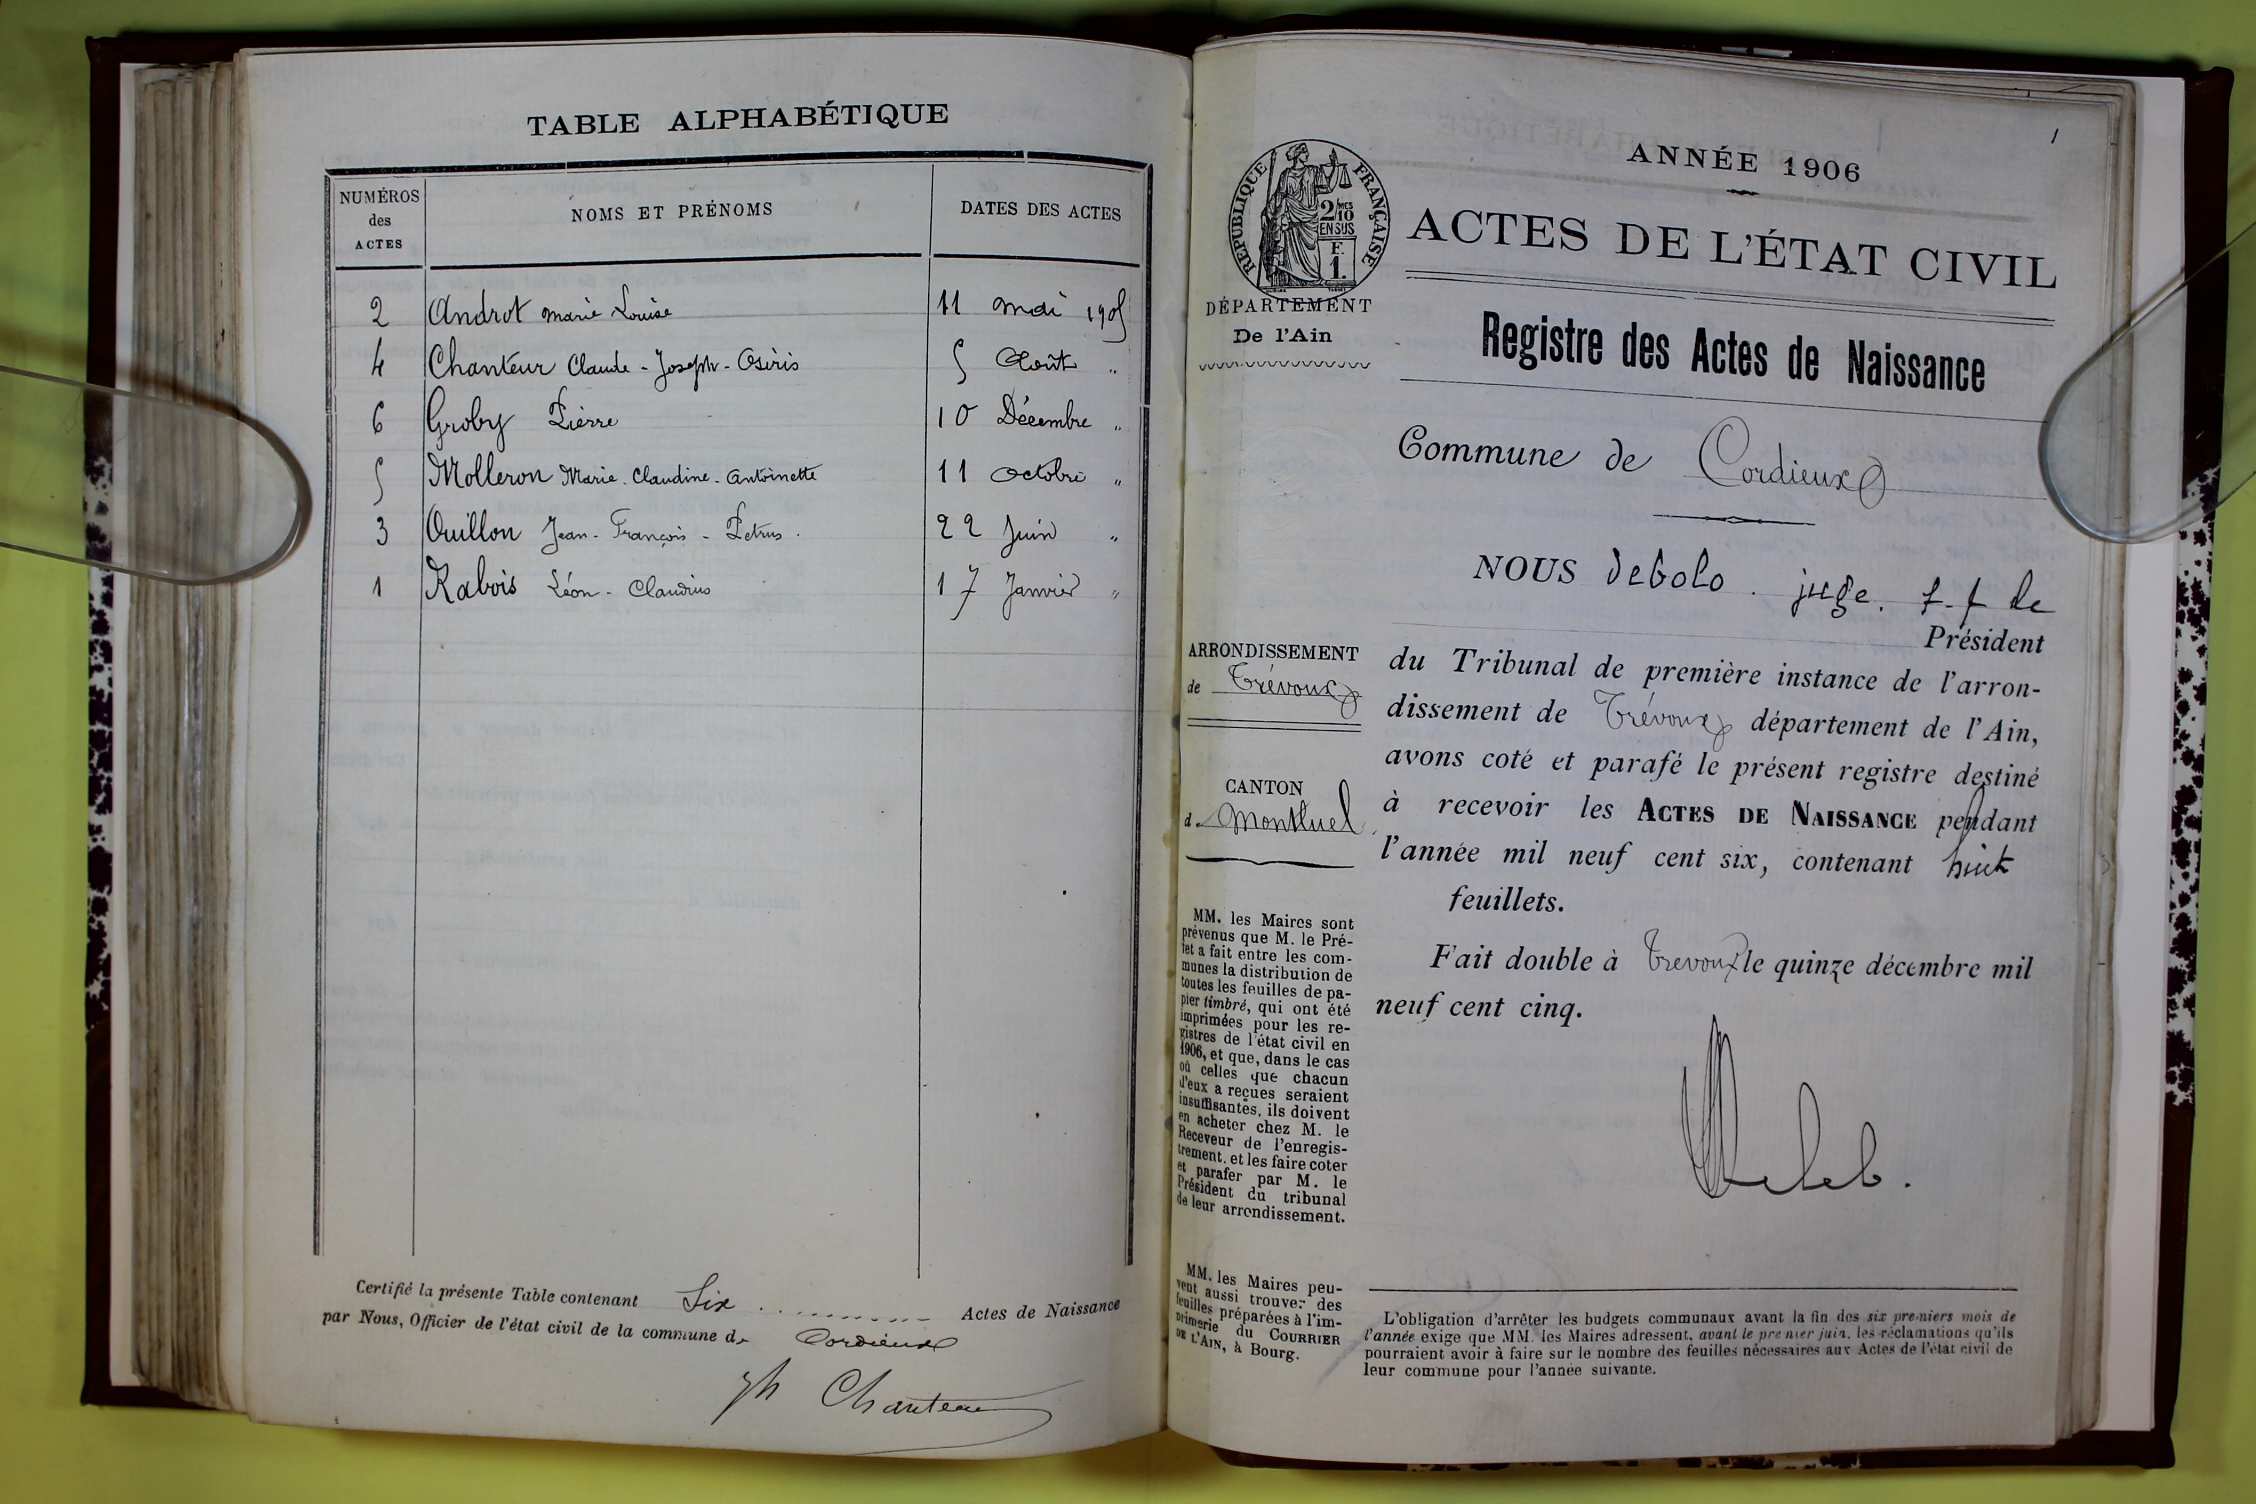 TABLE ALPHABÉTIQUE
NUMÉROS
des
ACTES
NOMS ET PRÉNOMS
DATES DES ACTES
2 Androt Marie Louise 11 Mai 1905
4 Chanteur Claude - Joseph - Osiris 5 Août "
6 Groby Pierre 10 Décembre "
5 Molleron Marie. Claudine. Antoinette 11 Octobre "
3 Ouillon Jean - François - Petrus. 22 Juin "
1 Rabois Léon - Claudius 17 Janvier "
Certifié la présente Table contenant Six Actes de Naissance
par Nous, Officier de l'état civil de la commune de Cordieux
Jh Chanteur
1
RÉPUBLIQUE FRANÇAISE
2/10 MES
EN SUS
F.
1.
DÉPARTEMENT
De l'Ain
ARRONDISSEMENT
de Trévoux
CANTON
de Montluel
MM. les Maires sont
prévenus que M. le Pré-
fet a fait entre les com-
munes la distribution de
toutes les feuilles de pa-
pier timbré, qui ont été
imprimées pour les re-
gistres de l'état civil en
1906, et que, dans le cas
où celles que chacun
d'eux a reçues seraient
insuffisantes, ils doivent
en acheter chez M. le
Receveur de l'enregis-
trement, et les faire coter
et parafer par M. le
Président du tribunal
de leur arrondissement.
MM. les Maires peu-
vent aussi trouver des
feuilles préparées à l'im-
primerie du COURRIER
DE L'AIN, à Bourg.
ANNÉE 1906
ACTES DE L'ÉTAT CIVIL
Registre des Actes de Naissance
Commune de Cordieux
NOUS Debolo. juge. f.f de
Président
du Tribunal de première instance de l'arron-
dissement de Trévoux département de l'Ain,
avons coté et parafé le présent registre destiné
à recevoir les ACTES DE NAISSANCE pendant
l'année mil neuf cent six, contenant huit
feuillets.
Fait double à Trevoux le quinze décembre mil
neuf cent cinq.
L'obligation d'arrêter les budgets communaux avant la fin des six premiers mois de
l'année exige que MM. les Maires adressent, avant le premier juin, les réclamations qu'ils
pourraient avoir à faire sur le nombre des feuilles nécessaires aux Actes de l'état civil de
leur commune pour l'année suivante.